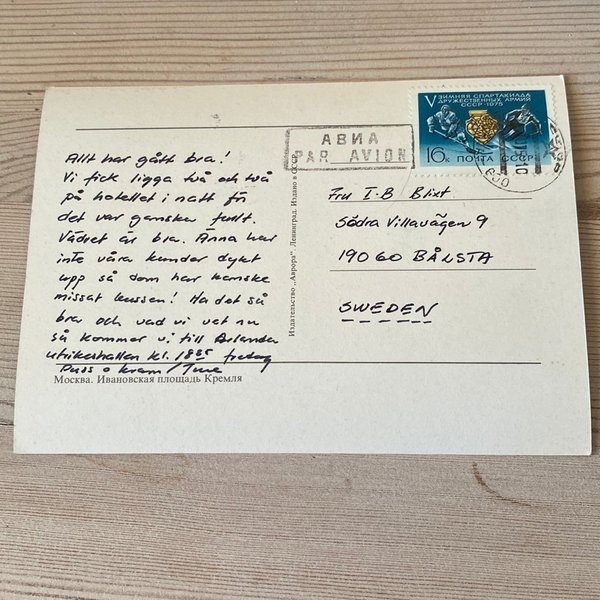 V ЗИМНЯЯ СПАРТАКИАДА
ДРУЖЕСТВЕННЫХ АРМИЙ
СССР·1975
16к ПОЧТА СССР
АВИА
PAR AVION
Allt har gått bra!
Vi fick ligga två och två
på hotellet i natt för
det var ganska fullt.
Vädret är bra. Änna har
inte våra kunder dykt
upp så dom har kanske
missat bussen! Ha det så
bra och vad vi vet nu
så kommer vi till Arlanda
utrikeshallen kl. 18 fredag
Puss o kram/Ture
Москва. Ивановская площадь Кремля
Издательство „Аврора". Ленинград. Издано в СССР
Fru I-B Blixt
Södra Villavägen 9
190 60 BÅLSTA
SWEDEN